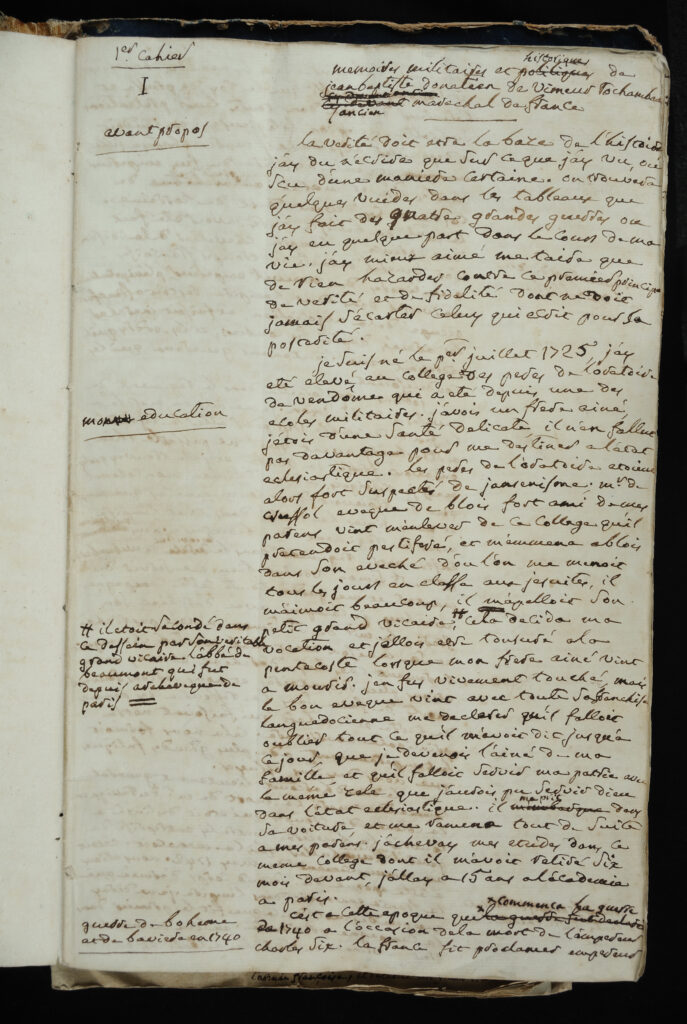 1er Cahier
I
avant propos
memoires militaires et politiques historiques de
jean baptiste donatien de Vimeur Rochambeau
ancien marechal de france
la verité doit etre la baze de l'histoire
j'ay du n'ecrire que sur ce que j'ay vû, ou
scu d'une maniere certaine. on trouvera
quelques vuides dans les tableaux que
j'ay fait des quatre grandes guerres ou
j'ay eu quelque part dans le cours de ma
vie. j'ay mieux aimé me taire que
de rien hazarder contre ce premier principe
de verité et de fidelité dont ne doit
jamais s'ecarter celuy qui ecrit pour la
posterité.
je suis né le per juillet 1725, j'ay
eté elevé au college des peres de l'oratoire
de vendôme qui a eté depuis une des
ecoles militaires. j'avois un frere ainé,
j'etois d'une santé delicate il n'en fallut
pas davantage pour me destiner a l'etat
eclesiastique. les peres de l'oratoire etoient
alors fort suspectés de jansenisme. mr. de
crussol eveque de blois fort ami de mes
parens vint m'enlever de ce college qu'il
pretendoit pestiferé, et m'emmena a blois
dans son eveché d'ou l'on me menoit
tous les jours en classe aux jesuites, il
m'aimoit beaucoup, il m'apelloit son
petit grand vicaire. # cela decida ma
vocation et j'allois etre tonsuré a la
pentecoste lorsque mon frere ainé vint
a mourir. j'en fus vivement touché, mais
le bon eveque vint avec toute sa franchise
languedocienne me declarer qu'il falloit
oublier tout ce qu'il m'avoit dit jusqu'a
ce jour, que je devenois l'ainé de ma
famille, et qu'il falloit servir ma patrie avec
le meme zele que j'aurois pu servir dieu
dans l'etat eclesiastique. il me mit dans
sa voiture et me ramena tout de suite
a mes parens. j'achevay mes etudes dans ce
meme college dont il m'avoit retiré six
mois devant, j'allay a 15 ans a l'academie
a paris.
c'est a cette epoque que commença la guerre
de 1740 a l'occasion de la mort de l'empereur
charles six. la france fit proclamer empereur
mon education
# il etoit secondé dans
ce dessein par son veritable
grand vicaire l'abbé de
beaumont qui fut
depuis archeveque de
paris
guerre de boheme
et de baviere en 1740